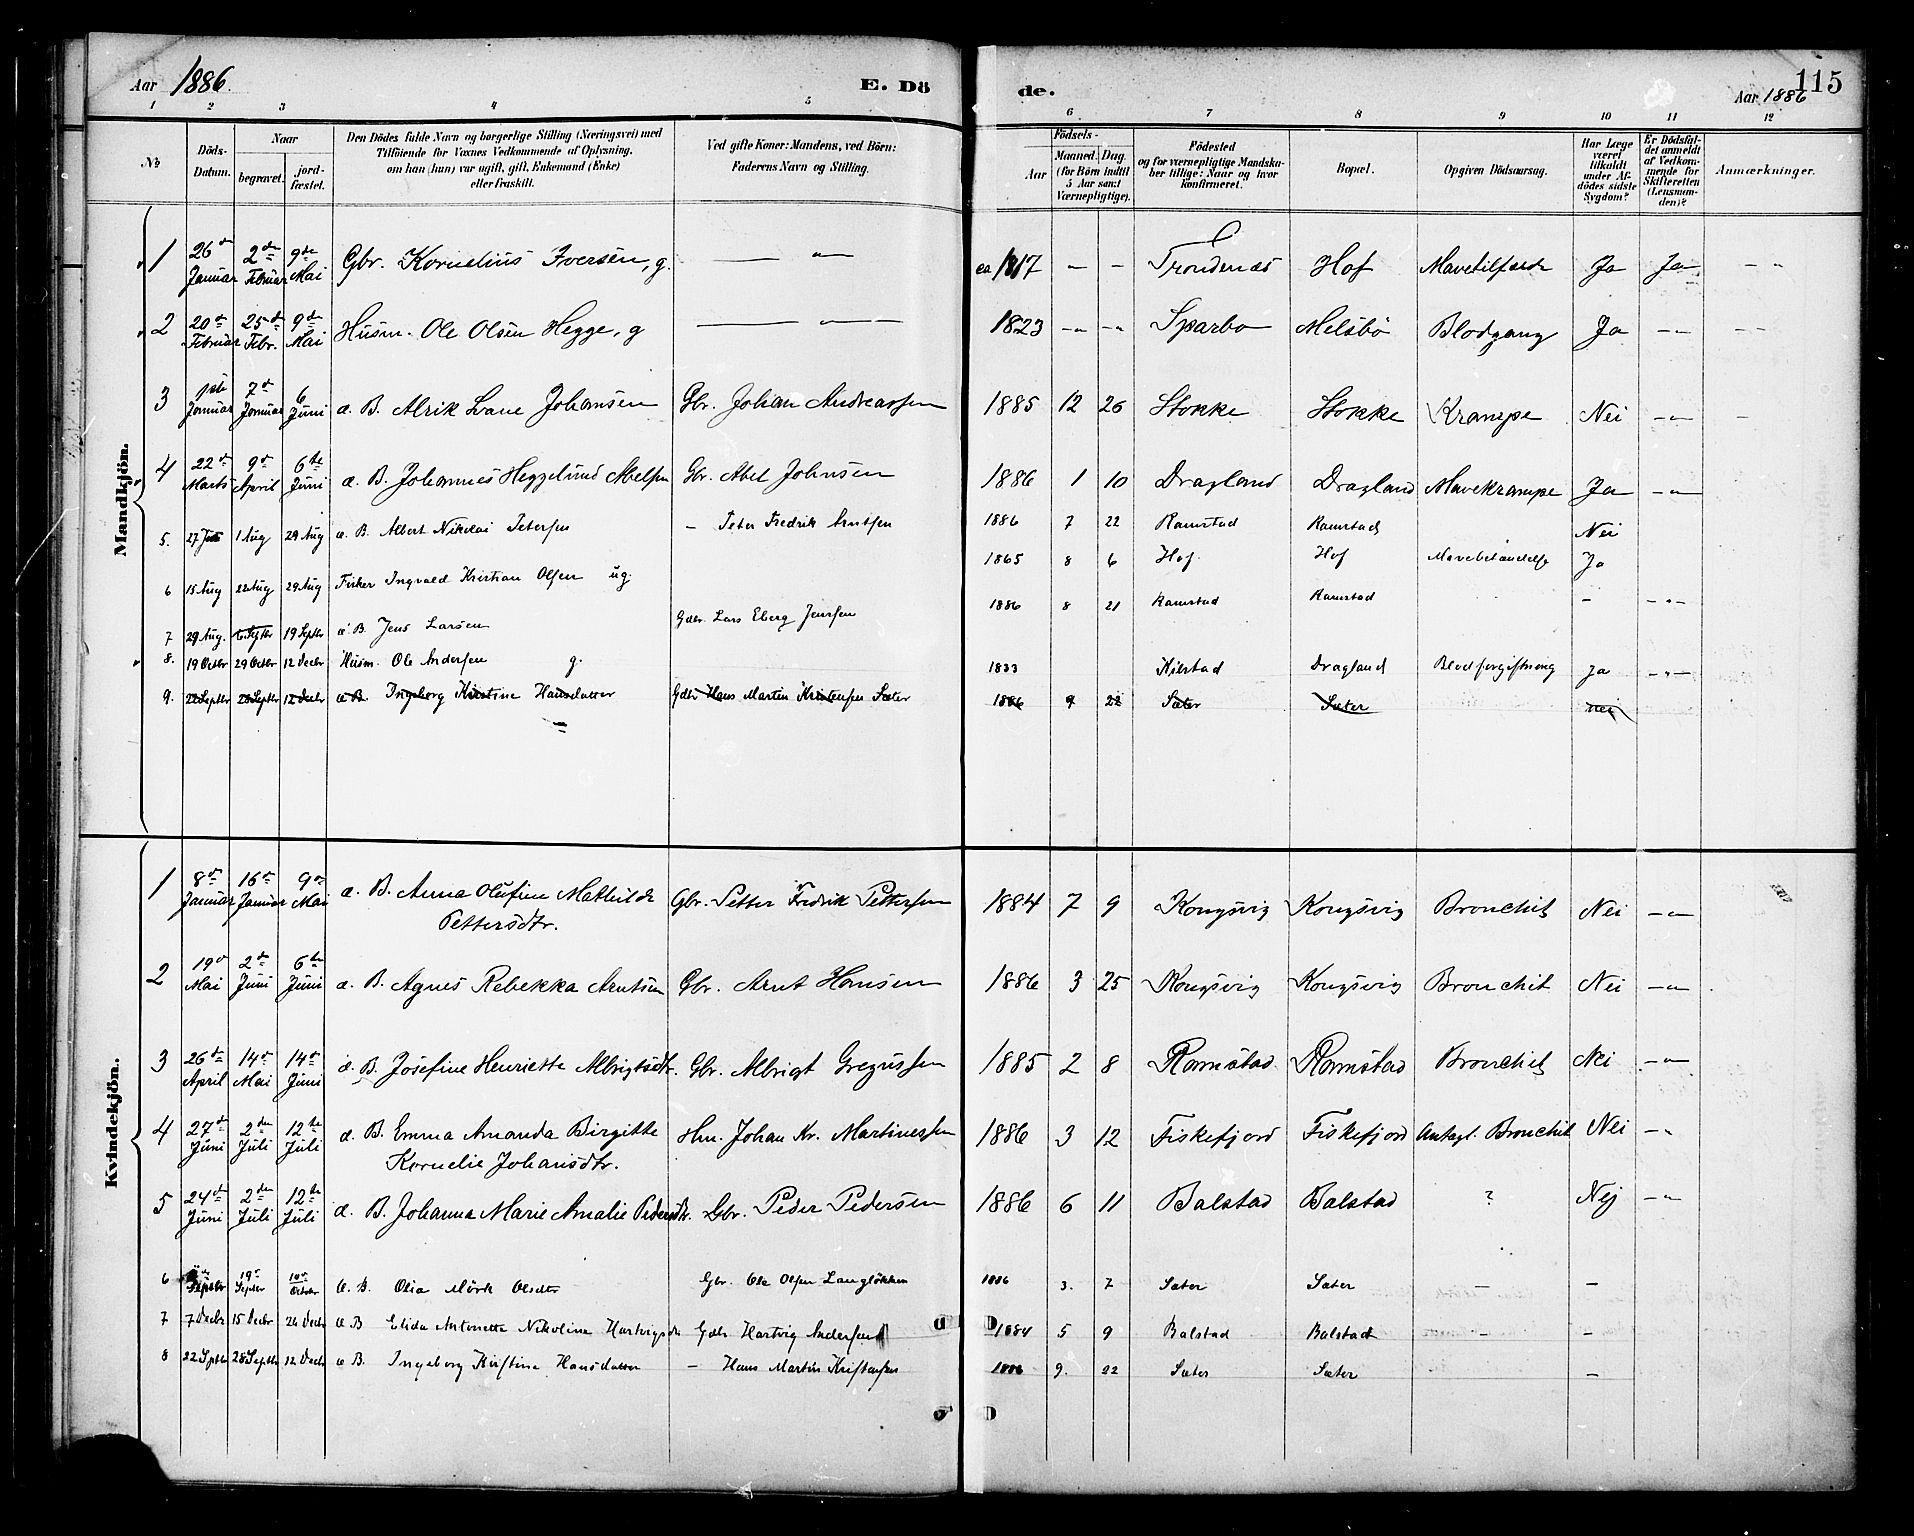 Aar 1886. E. Dö de. Aar 1886 115
1 2 3 4 5 6 7 8 9 10 11 12
№ Döds-Datum. Naar begravet. jordfæstet. Den Dödes fulde Navn og borgerlige Stilling (Næringsvei) med Tilföiende for Voxnes Vedkommende af Oplysning, om han (hun) var ugift, gift, Enkemand (Enke) eller fraskilt. Ved gifte Koner: Mandens, ved Börn: Faderens Navn og Stilling. Födsels- Aar Maaned. Dag. (for Börn indtil 5 Aar samt Værnepligtige). Födested og for værnepligtige Mandskaber tillige: Naar og hvor konfirmeret. Bopæl. Opgiven Dödsaarsag. Har Læge været tilkaldt under Afdödes sidste Sygdom? Er Dödsfaldet anmeldt af Vedkommende for Skifteretten (Lensmanden)? Anmærkninger.
Mandkjön.
1 26de Januar 2de Februar 9de Mai Gbr. Kornelius Iversen, g. — „ — ca 1817 - - Trondenæs Hof Mavetilfælde Ja Ja - „
2 20de Februar 25de Febr. 9de Mai Husm. Ole Olsen Hegge, g — „ — 1823 -„- -„ Sparbo Melsbö Blodgang Ja -„- - -
3 1ste Januar 7de Januar 6 Juni d. B. Alrik Lane Johansen Gbr. Johan Andreassen 1885 12 26 Stokke Stokke Krampe Nei -„- -
4 22de Marts 9de April 6te Juni d. B. Johannes Heggelund Abelsen Gbr. Abel Johnsen 1886 1 10 Dragland Dragland Mavekrampe Ja -„-
5. 27 1 Aug 29 Aug d. B. Albert Nikolai Petersen - Peter Fredrik Arntsen 1886 7 22 Ramstad Ramstad Nei
6 15 Aug 22 Aug 29 Aug Fisker Ingvald Kristian Olsen ug. 1865 8 6 Hof Hof Mavebetændelse Ja
7 29 Aug. 6 Septbr 19 Septbr d. B. Jens Larsen Gdbr. Lars Eberg Jenssen 1886 8 21 Ramstad Ramstad - -„-
8. 19 Octbr 29 Octbr 12 Decbr Husm. Ole Andersen g. 1833 Kilstad Dragland Blodforgiftning Ja -„-
9. 22 Septbr 28 Septbr 12 Decbr d. B. Ingeborg Kirstine Hansdatter Gdbr Hans Martin Kristensen Sæter 1886 9 22 Sæter Sæter nei
Kvindekjön.
1 8de Januar 16de Januar 9de Mai d. B. Anna Olufine Mathilde Gbr. Petter Fredrik Pettersen 1884 7 9 Kongsvig Kongsvig Bronchit Nei -„-
Pettersdtr.
2 19de Mai 2de Juni 6te Juni d. B. Agnes Rebekka Arntsen Gbr. Arnt Hansen 1886 3 25 Kongsvig Kongsvig Bronchit Nei -„-
3 26de April 14de Mai 14de Juni d. B. Josefine Henriette Albrigtsdtr. Gbr. Albrigt Gregussen 1885 2 8 Ramstad Ramstad Bronchit Nei -„-
4 27de Juni 2den Juli 12te Juli d. B. Emma Amanda Birgitte Hm. Johan Kr. Martinessen 1886 3 12 Fiskefjord Fiskefjord Antagl. Bronchit Nei -„
Kornelie Johansdtr.
5 24de Juni 2den Juli 12te Juli d. B. Johanna Marie Amalie Pedersdtr. Gbr. Peder Pedersen 1886 6 11 Balstad Balstad ? Nej -„
6 Septbr 19de Septbr 10de Octbr d. B. Olia Mörk Olsdtr Gbr. Ole Olsen Langlökken 1886 3. 7 Sæter Sæter - -
7 7 Decbr 15 Decbr 26 Decbr d. B Elida Antonette Nikoline Hartvigsdtr Gdbr Hartvig Andersen 1884 5 9 Balstad Balstad - -
8 22 Septbr 28 Septbr 12 Decbr d. B. Ingeborg Kirstine Hansdatter - Hans Martin Kristensen 1886 9. 22 Sæter Sæter -